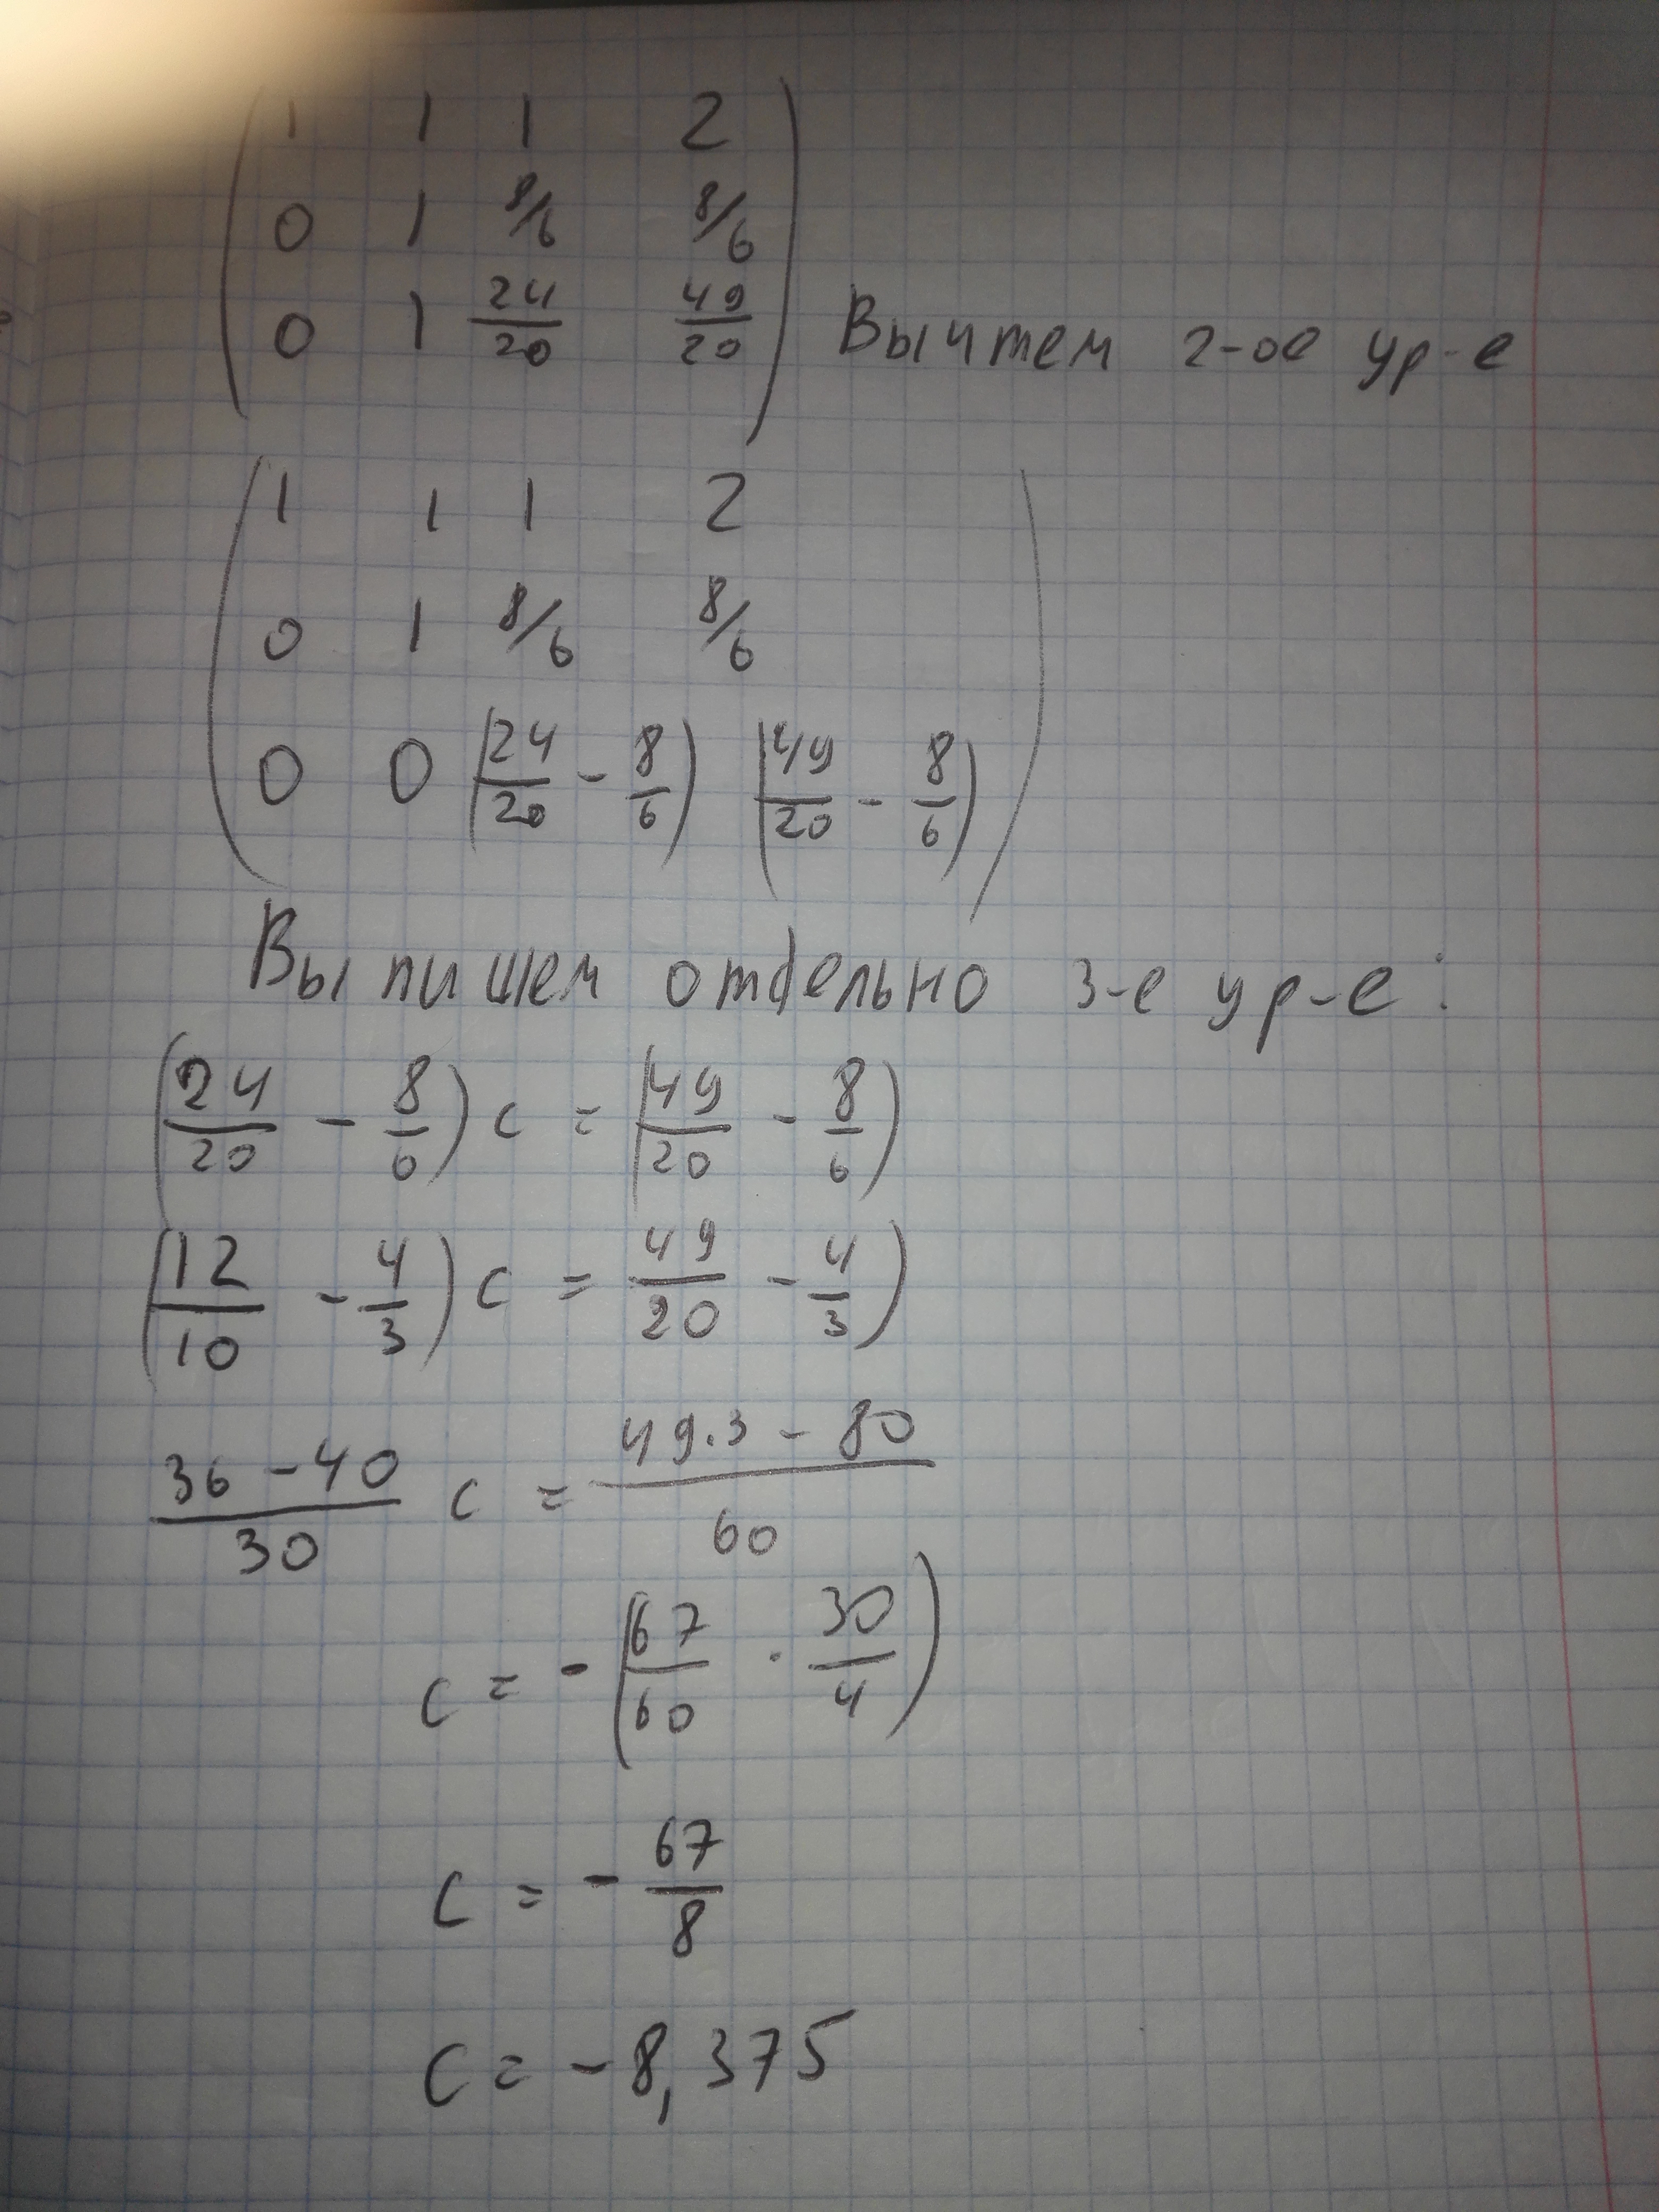 1 1 1 2
0 1 8/6 8/6
0 1 24/20 49/20 Вычтем 2-ое ур-е
1 1 1 2
0 1 8/6 8/6
0 0 (24/20 - 8/6) (49/20 - 8/6)
Выпишем отдельно 3-е ур-е:
(24/20 - 8/6) c = (49/20 - 8/6)
(12/10 - 4/3) c = 49/20 - 4/3)
36 - 40/30 c = 49.3 - 80/60
c = - (67/60 · 30/4)
c = - 67/8
c = - 8,375